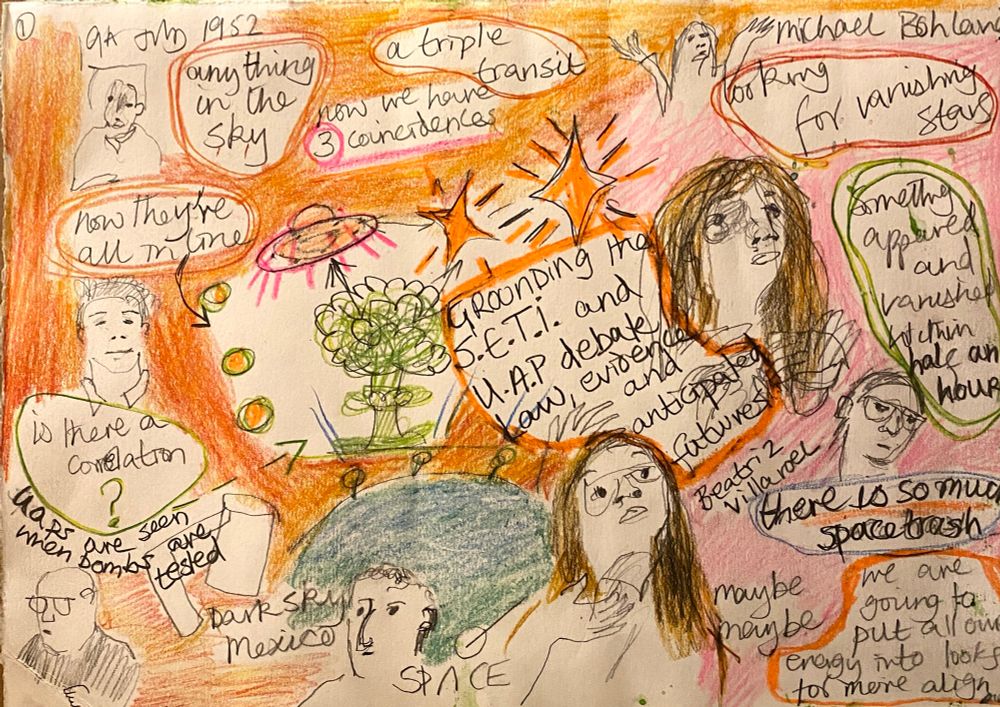 1
9th July 1952
anything
in the
sky
a triple
transit
now we have
3 coincidences
michael Bohlan
looking
for vanishing
stars
now they're
all in line
Grounding the
S.E.T.I. and
U.A.P debate
Law, evidence
and
anticipated
futures
somethng
appared
and
vanished
within
half an
hour
is there a
correlation
?
uaps are seen
when bombs are
tested
Beatriz
Villaroel
there is so much
space trash
Dark sky
Mexico
SPACE
maybe
maybe
we are
going to
put all our
energy into looks
for more align